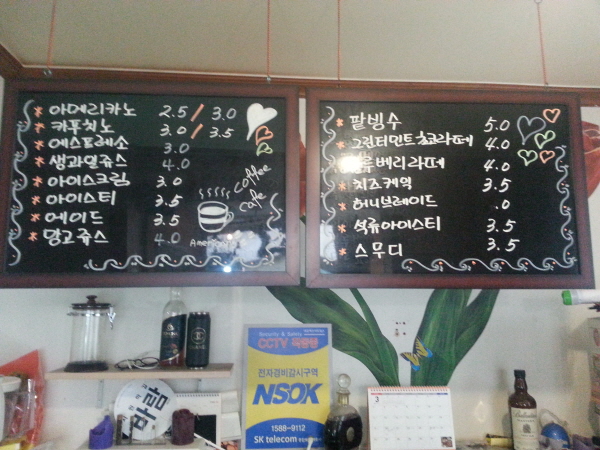 아메리카노 2.5 / 3.0
카푸치노 3.0 / 3.5
에스프레소 3.0
생과일쥬스 4.0
아이스크림 3.0
아이스티 3.5
에이드 3.5
망고쥬스 4.0
coffee
cafe
팥빙수 5.0
그린티민트 쵸코라떼 4.0
베리라떼 4.0
치즈케익 3.5
허니브레이드 .0
석류아이스티 3.5
스무디 3.5
Security & Safety
CCTV 작동중
전자경비감시구역
NSOK
1588-9112
SK telecom
바람
3